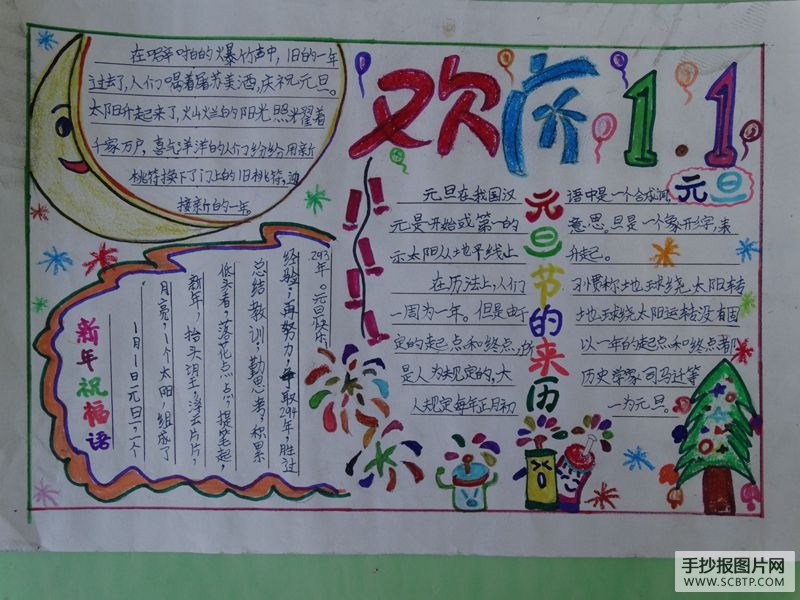 在噼啪的爆竹声中，旧的一年
过去了，人们喝着屠苏美酒，庆祝元旦。
太阳升起来了，火山火兰的阳光照耀着
千家万户，喜气洋洋的人们纷纷用新
桃符换下了门上的旧桃符，迎
接新的一年。
欢庆1.1
元旦
元旦节的来历
元旦在我国汉语中是一个合成词
元是开始或第一的意思。旦是一个象形字，表
示太阳从地平线上升起。
在历法上，人们习惯称地球绕太阳转
一周为一年。但是由地球绕太阳运转没有固
定的起点和终点，所以一年的起点和终点都
是人为规定的，大历史学家司马迁等
人规定每年正月初一为元旦。
新年祝福语
1月1日元日；一个
月亮，1个太阳，组成了
新年，抬头望，浮云片片，
低头看，落花点点，提笔起，
总结教训，勤思考，积累
经验，再努力，争取294年，胜过
293年。元旦快乐！
手抄报图片网
WWW.SCBTP.COM